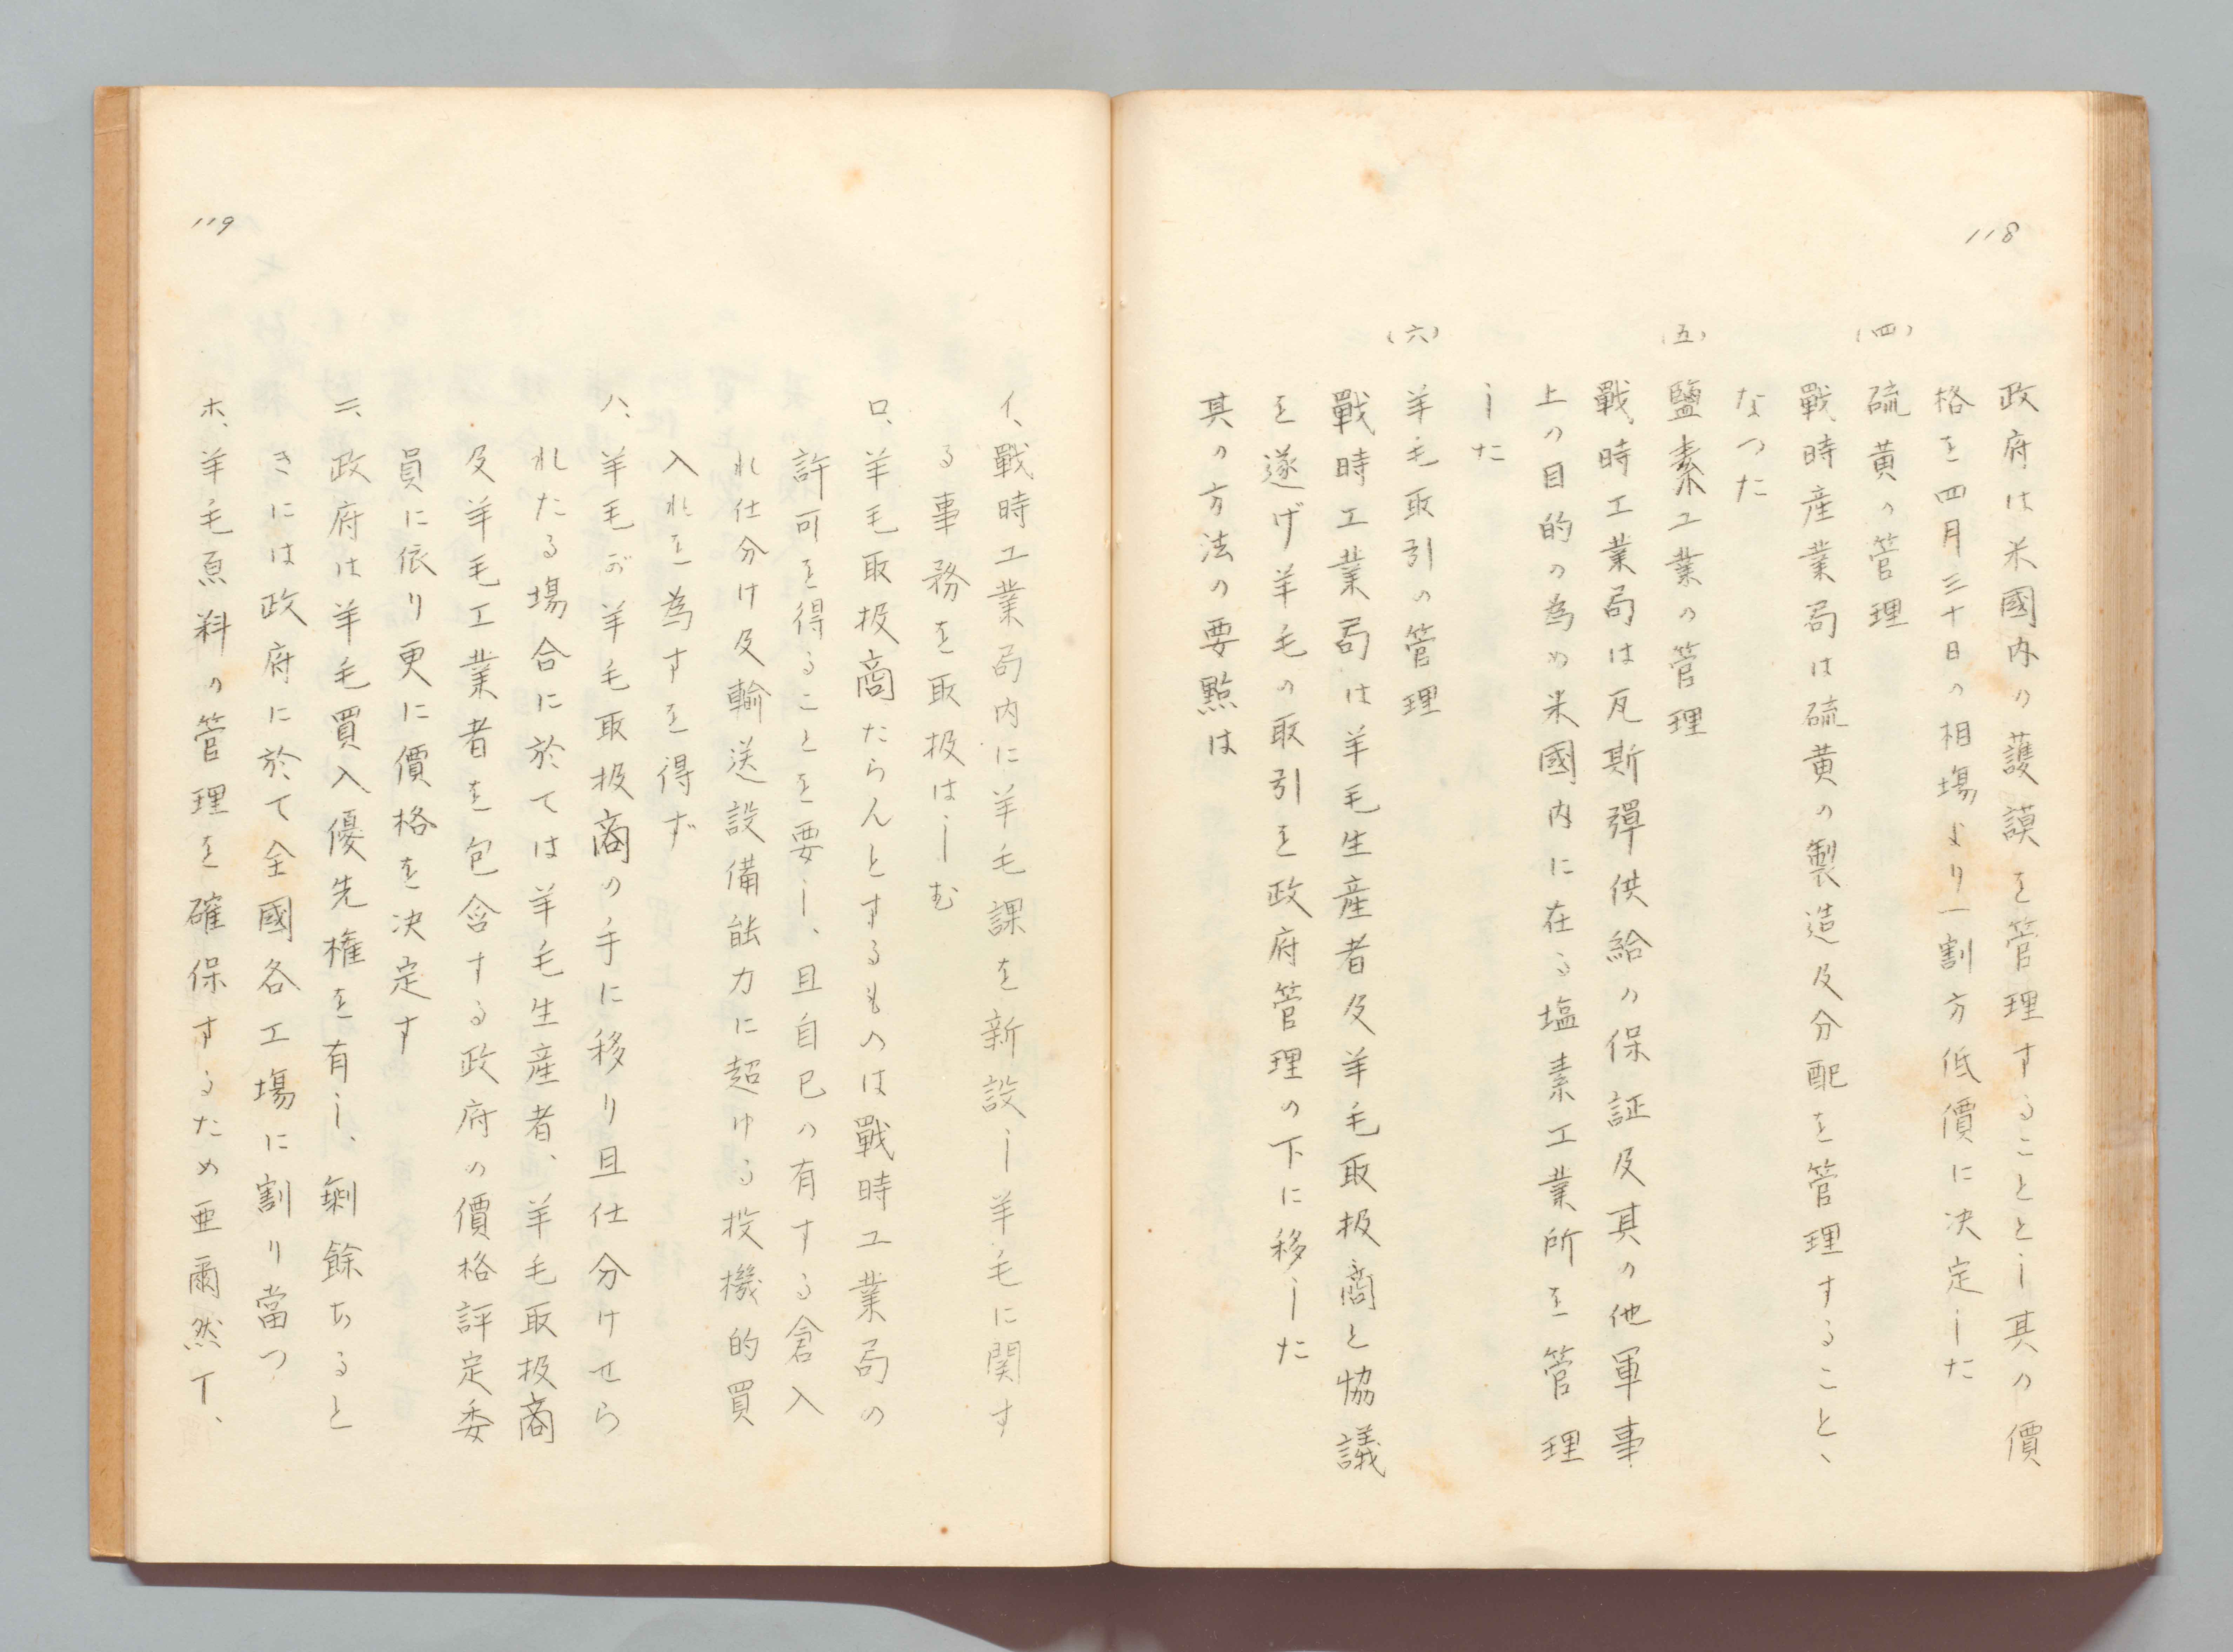 118
政府は米國内の護謨を管理することとし其の價
格を四月三十日の相場より一割方低價に決定した
(四)
硫黄の管理
戰時産業局は硫黄の製造及分配を管理すること、
なつた
(五)
鹽素工業の管理
戰時工業局は瓦斯彈供給の保証及其の他軍事
上の目的の為め米國内に在る塩素工業所を管理
した
(六)
羊毛取引の管理
戰時工業局は羊毛生産者及羊毛取扱商と協議
を遂げ羊毛の取引を政府管理の下に移した
其の方法の要點は
イ、戰時工業局内に羊毛課を新設し羊毛に関す
る事務を取扱はしむ
ロ、羊毛取扱商たらんとするものは戰時工業局の
許可を得ることを要し、且自己の有する倉入
れ仕分け及輸送設備能力に超ゆる投機的買
入れを為すを得ず
ハ、羊毛が羊毛取扱商の手に移り且仕分けせら
れたる場合に於ては羊毛生産者、羊毛取扱商
及羊毛工業者を包含する政府の價格評定委
員に依り更に價格を决定す
ニ、政府は羊毛買入優先権を有し、剰餘あると
きには政府に於て全國各工場に割り當つ
ホ、羊毛原料の管理を確保するため亜爾然丁、
119